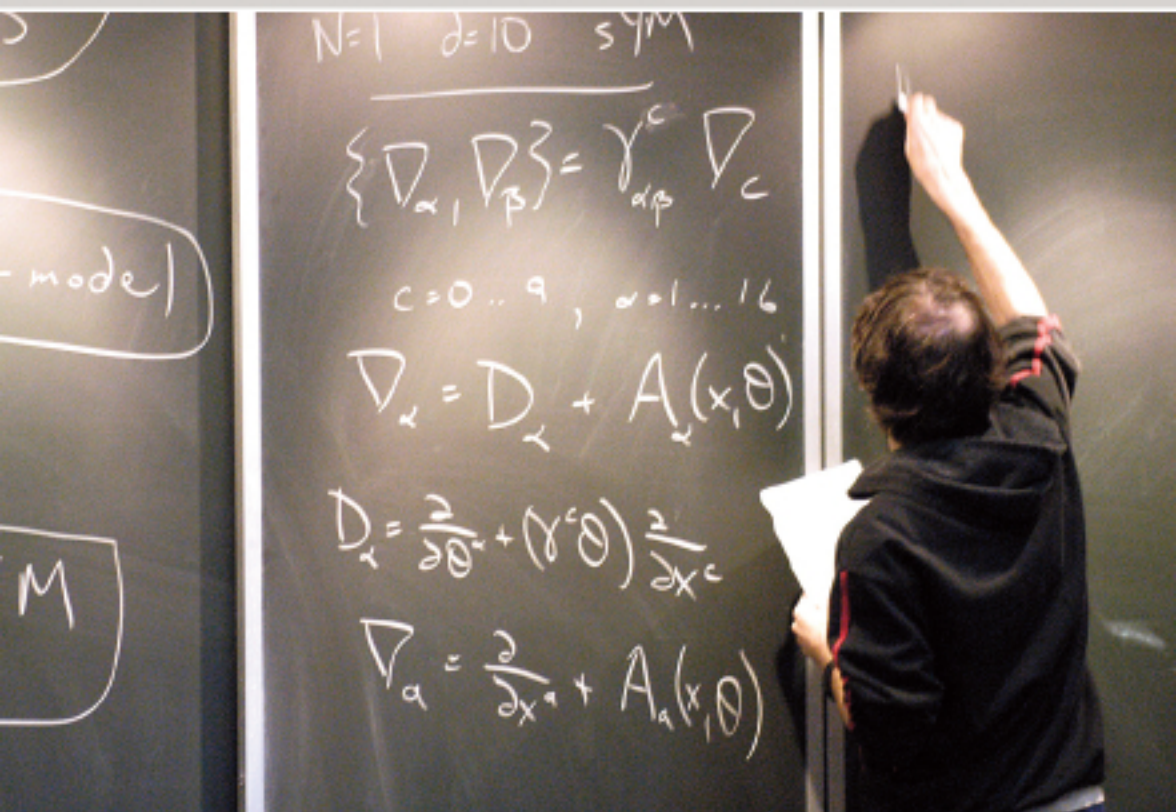 S
- model
M
N=1 d=10 sYM
{∇_α, ∇_β} = γ^c_{αβ} ∇_c
c=0..9, α=1...16
∇_α = D_α + A_α(x,θ)
D_α = ∂/∂θ^α + (γ^c θ) ∂/∂x^c
∇_a = ∂/∂x^a + A_a(x,θ)